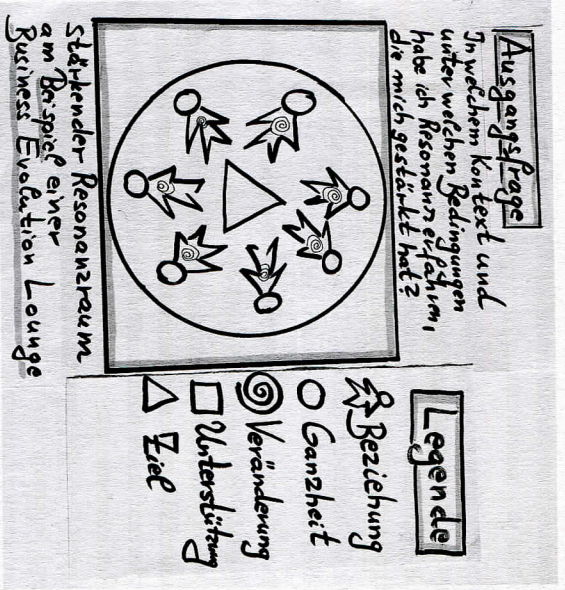 Ausgangsfrage
In welchem Kontext und
unter welchen Bedingungen
habe ich Resonanz erfahren,
die mich gestärkt hat?
Stärkender Resonanzraum
am Beispiel einer
Business Evolution Lounge
Legende
Beziehung
Ganzheit
Veränderung
Unterstützung
Ziel